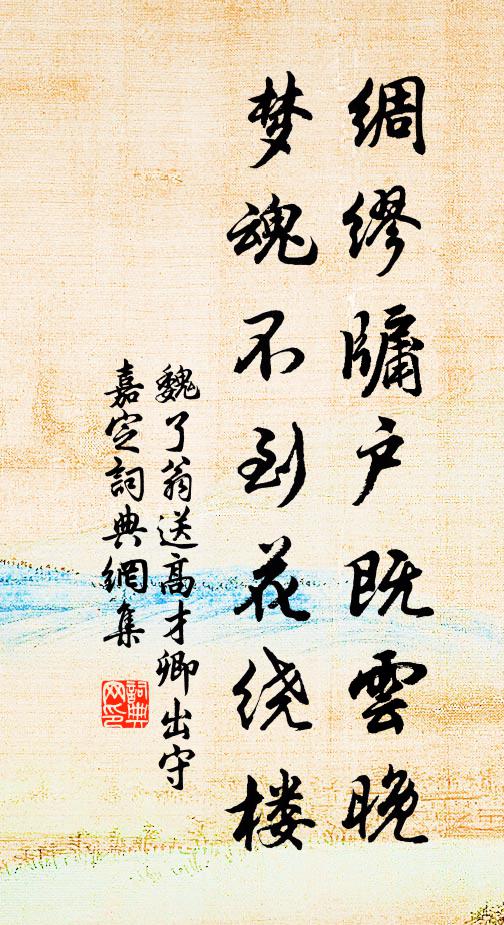 绸缪牖户既雲晚
梦魂不到花绕楼
魏了翁送高才卿出守
嘉定詞典網集
詞典
网印